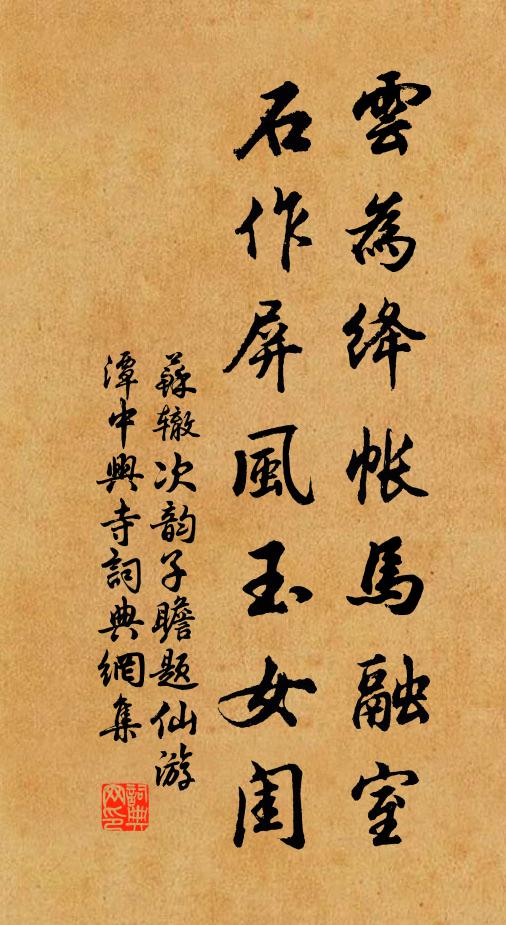 雲為绛帳馬融室
石作屏風玉女閨
蘇辙次韵子瞻題仙游
潭中興寺詞典網集
詞典網印